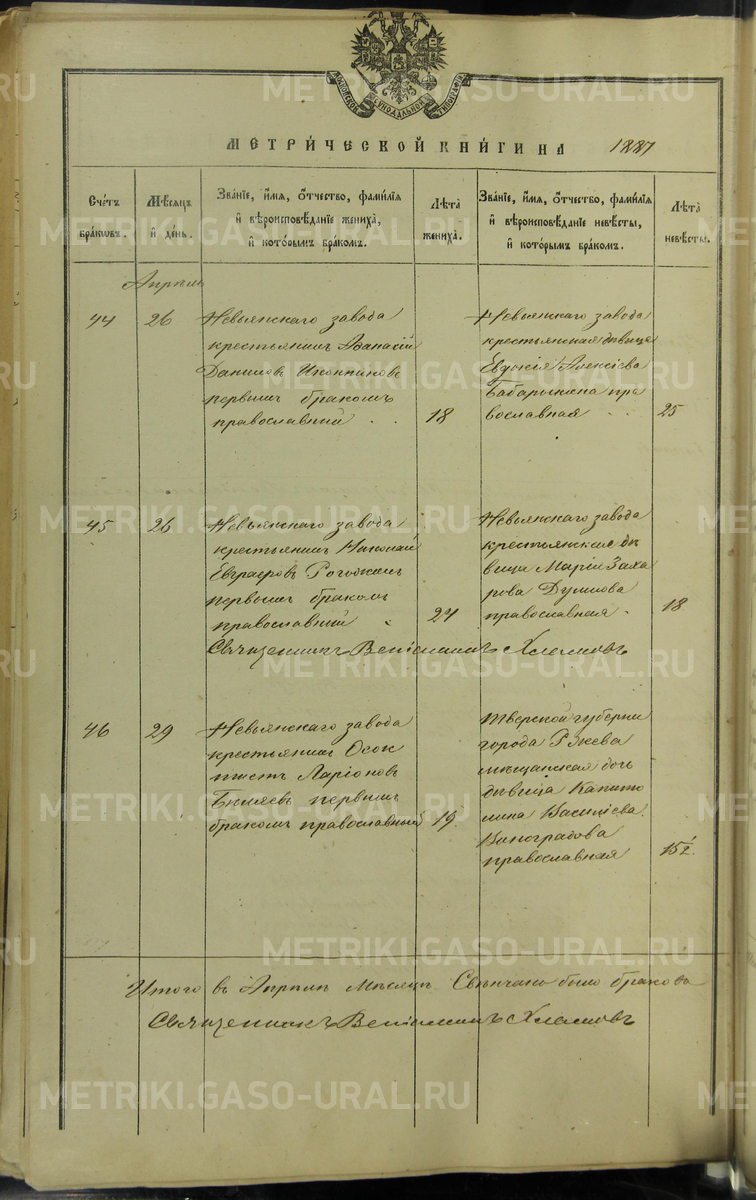 МОСКОВСКОЙ СѴНОДАЛЬНОЙ ТИПОГРАФІИ
МЕТРИ́ЧЕСКОЙ КНИ́ГИ НА 1887
Сче́тъ бра́ковъ.
Мѣ́сяцъ и҆ де́нь.
Зва́нїе, и҆́мя, ѻ҆́тчество, фами́лїя и҆ вѣроисповѣ́данїе жениха̀, и҆ кото́рымъ бра́комъ.
Лѣ́та жениха̀.
Зва́нїе, и҆́мя, ѻ҆́тчество, фами́лїя и҆ вѣроисповѣ́данїе невѣ́сты, и҆ кото́рымъ бра́комъ.
Лѣ́та невѣ́сты.
Апрѣль
44
26
Невьянскаго завода
крестьянинъ Афанасій
Даниловъ Иконниковъ
первымъ бракомъ
православный
18
Невьянскаго завода
крестьянская дѣвица
Евдокія Алексіева
Бабарыкина пра
вославная
25
45
26
Невьянскаго завода
крестьянинъ Николай
Евграфовъ Рогожинъ
первымъ бракомъ
православный
24
Невьянскаго завода
крестьянская дѣ
вица Марія Заха
рова
православная
18
Священникъ Веніаминъ Хламовъ
46
29
Невьянскаго завода
крестьянинъ
Ларіоновъ
Бѣляевъ первымъ
бракомъ православный
19
Тверской губерни
города Ржева
мѣщанская дочь
дѣвица Капито
лина Василіева
Виноградова
православная
15½.
Итого въ Апрѣлѣ мѣсяцѣ Свѣнчано было браковъ
Священникъ Веніаминъ Хламовъ
METRIKI.GASO-URAL.RU